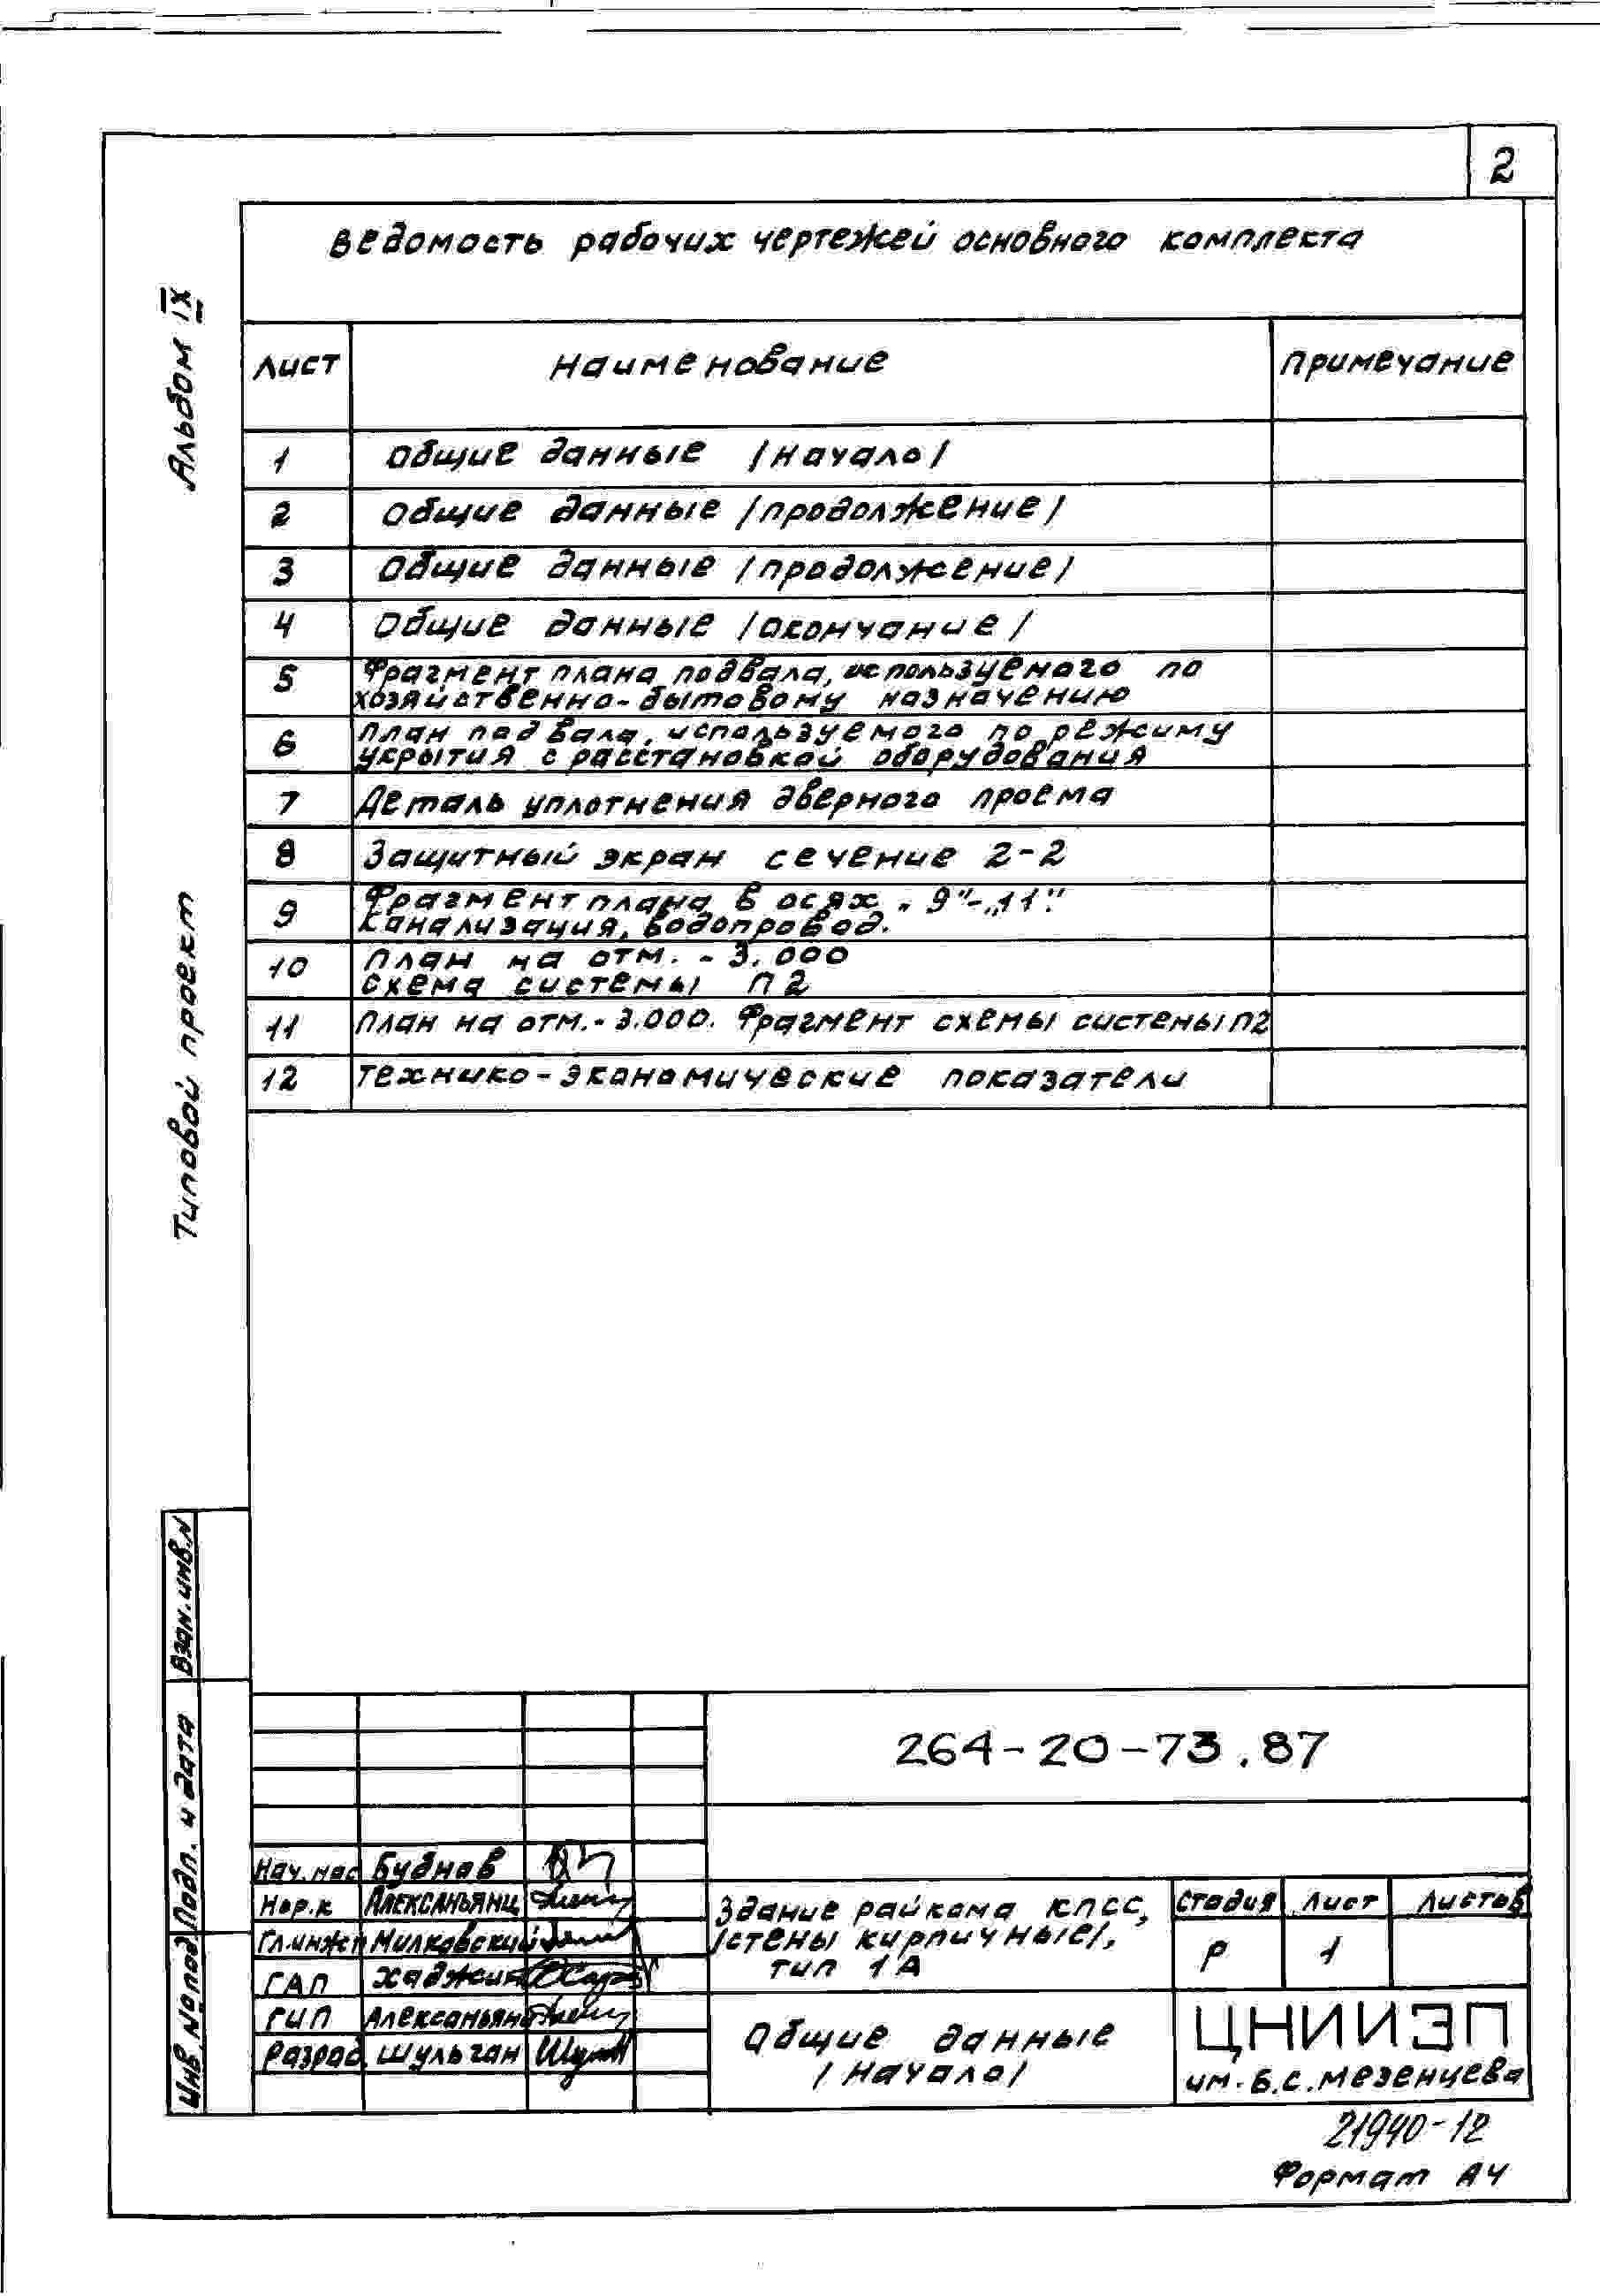 2
Ведомость рабочих чертежей основного комплекта
Альбом IX
Лист Наименование Примечание
1 Общие данные /начало/
2 Общие данные /продолжение/
3 Общие данные /продолжение/
4 Общие данные /окончание/
5 Фрагмент плана подвала, используемого по
хозяйственно-бытовому назначению
6 План подвала, используемого по режиму
укрытия с расстановкой оборудования
7 Деталь уплотнения дверного проема
8 Защитный экран сечение 2-2
9 Фрагмент плана в осях „9"-„11".
Канализация, водопровод.
10 План на отм. -3.000
схема системы П2
11 План на отм.-3.000. Фрагмент схемы системы П2
12 Технико-экономические показатели
Типовой проект
Взам.инв.N
Подп. и дата
Инв. N подл
264-20-73.87
Нач.мас Буднов
Нор.к Алексаньянц
Гл.инж.п Милковский
ГАП
ГИП Алексаньянц
Разраб. Шульган
Здание райкома КПСС,
/стены кирпичные/,
тип 1А
Стадия Лист Листов
Р 1
Общие данные
/начало/
ЦНИИЭП
им. Б.С. Мезенцева
21940-12
Формат А4